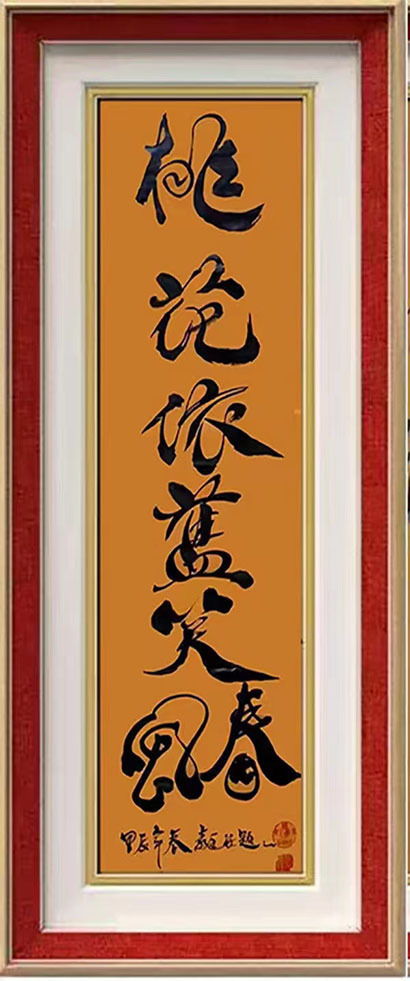 桃花依舊笑春風
甲辰年春 题